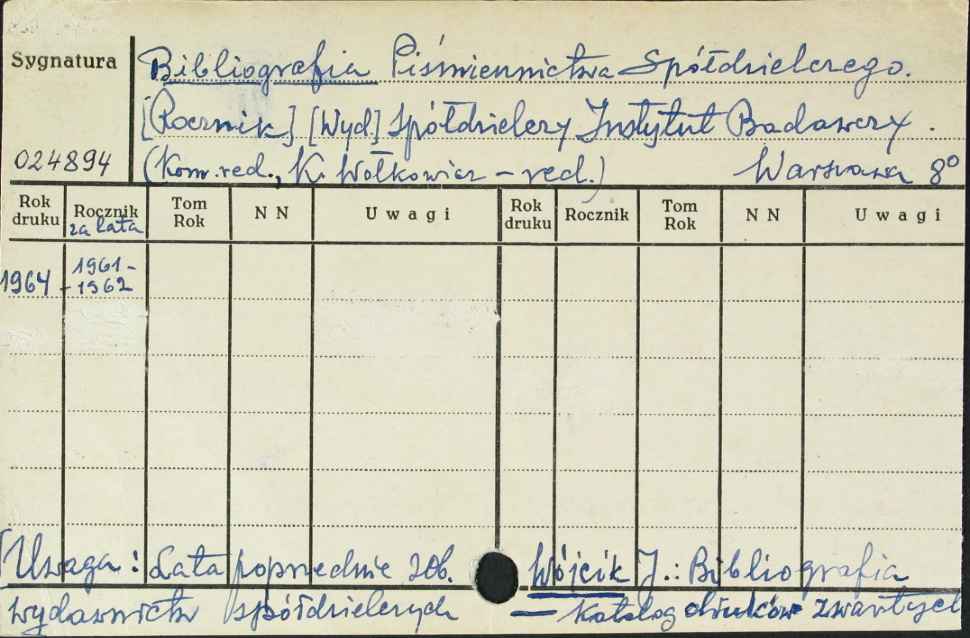 Sygnatura
Bibliografia Piśmiennictwa Spółdzielczego.
[Rocznik] [Wyd] Spółdzielczy Instytut Badawczy.
024894
(Kom. red., K. Wołkowicz – red.) Warszawa 8°
Rok druku Rocznik za lata Tom Rok N N Uwagi Rok druku Rocznik Tom Rok N N Uwagi
1964 1961-
-1962
[Uwaga: Lata poprzednie zob. Wójcik J.: Bibliografia
wydawnictw spółdzielczych – Katalog druków zwartych